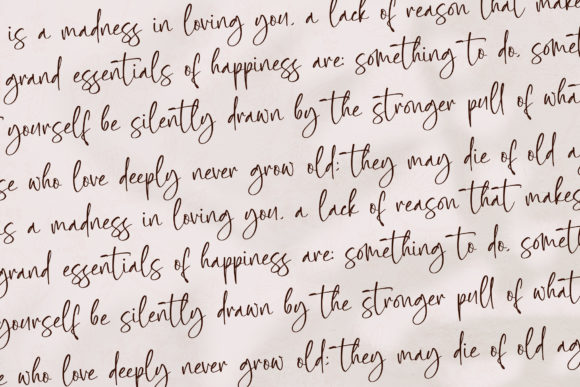 is a madness in loving you, a lack of reason that make
grand essentials of happiness are: something to do, somet
yourself be silently drawn by the stronger pull of what
se who love deeply never grow old; they may die of old a
is a madness in loving you, a lack of reason that makes
grand essentials of happiness are: something to do, somet
yourself be silently drawn by the stronger pull of what
e who love deeply never grow old; they may die of old ag